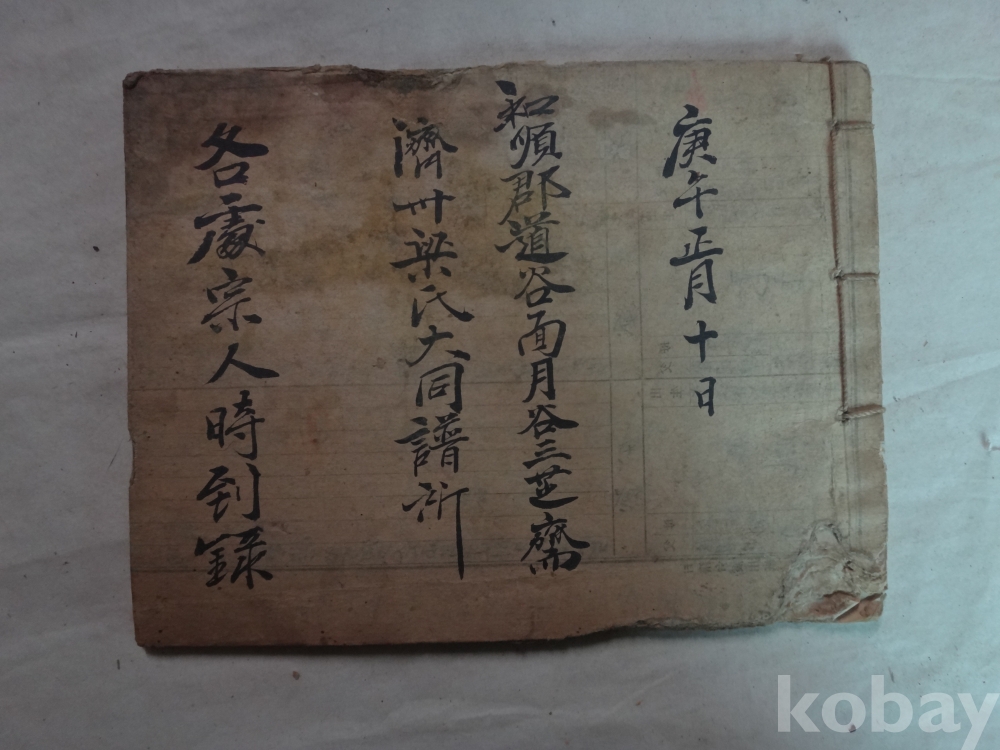 庚午正月十日
和順郡道谷面月谷三芝齋
濟州梁氏大同譜所
各處宗人時到録
kobay